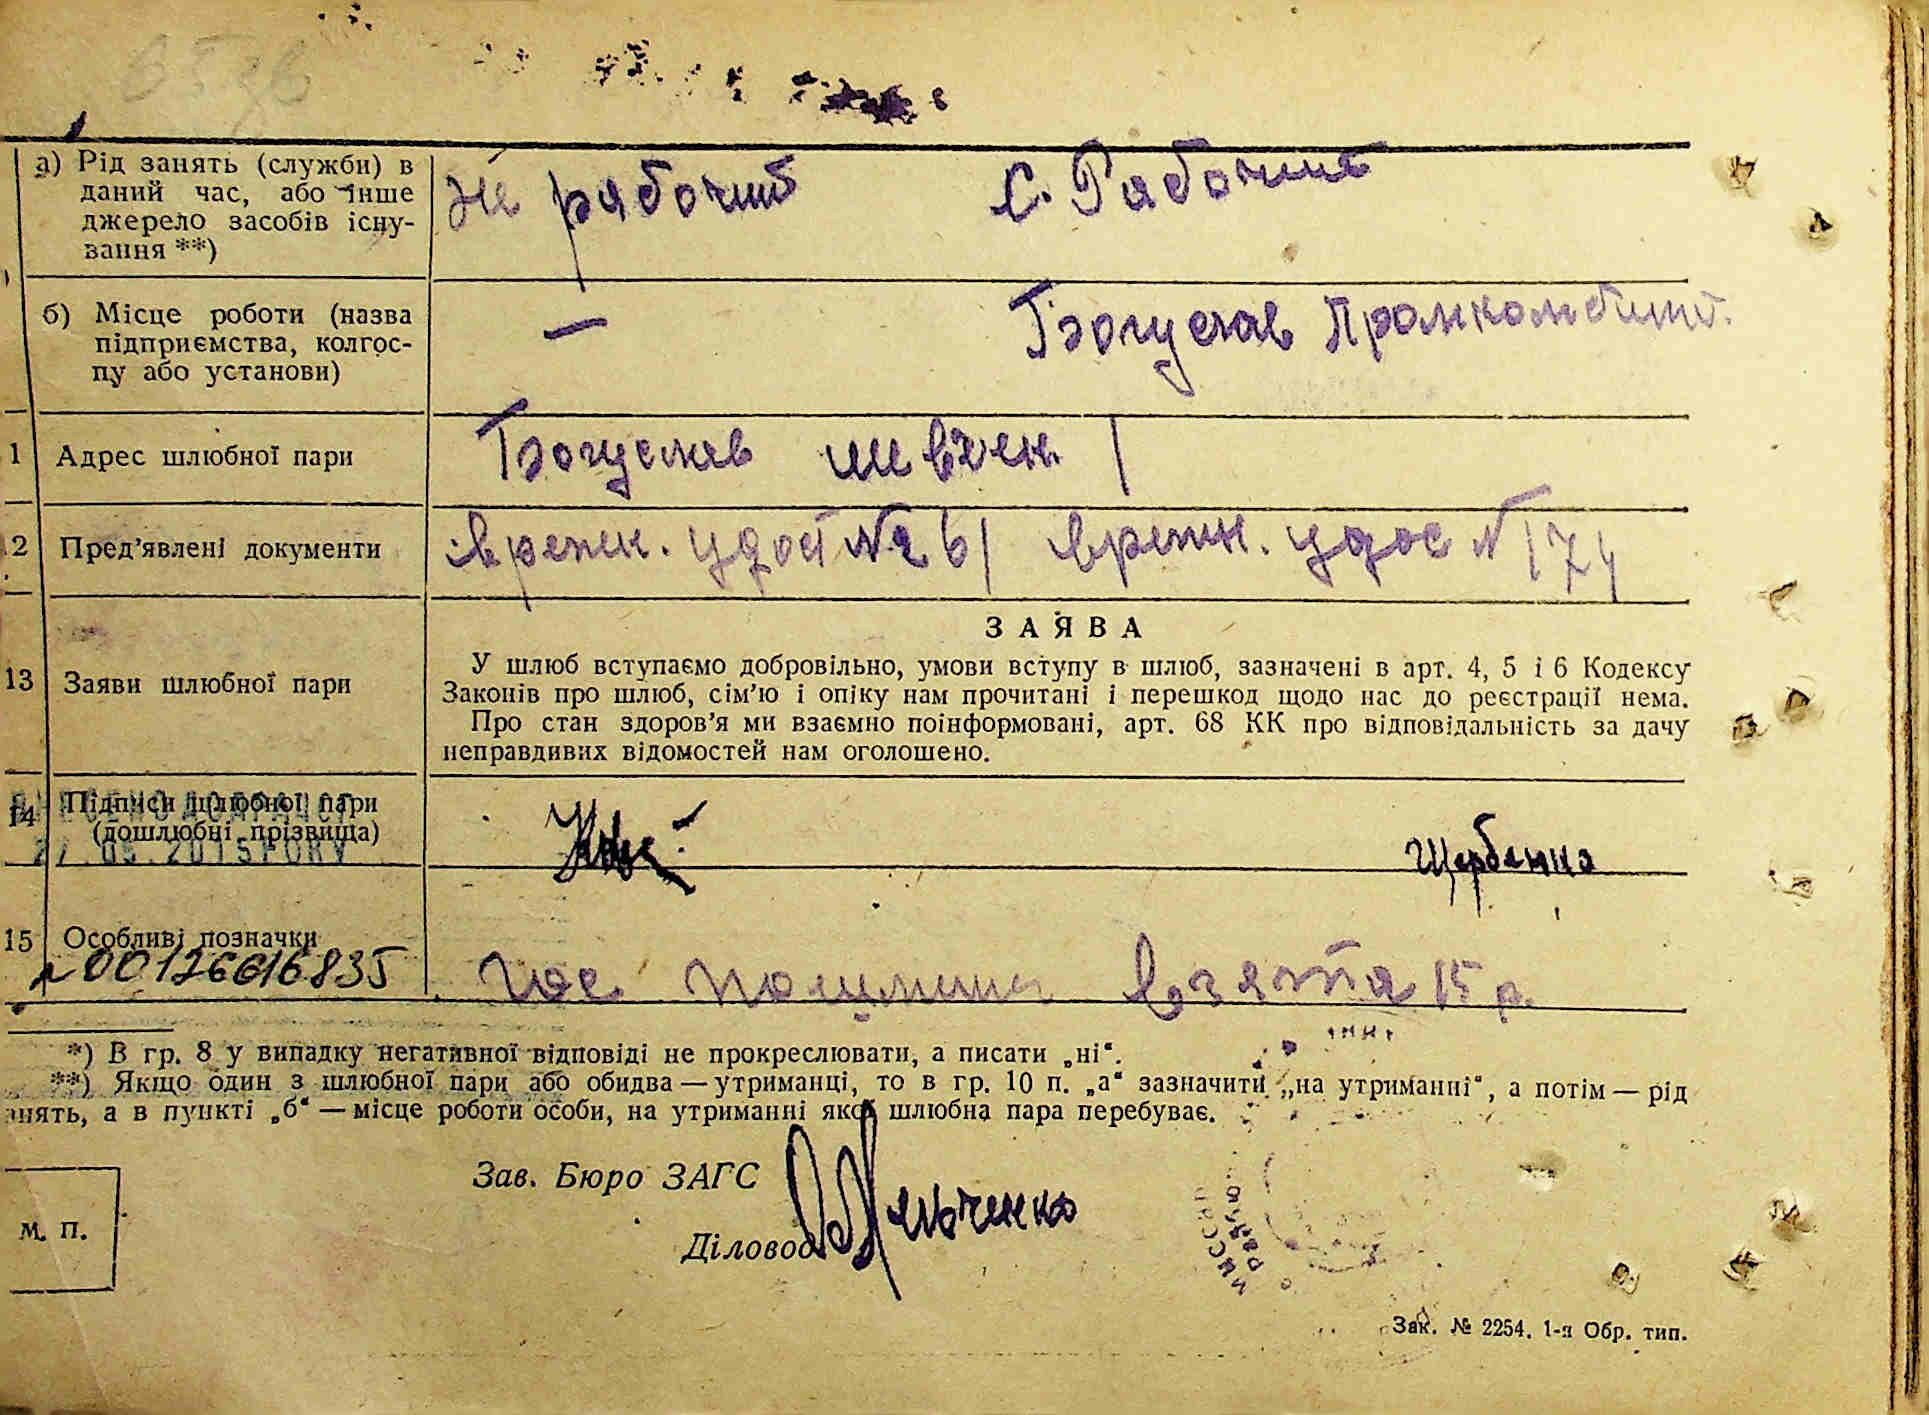 а) Рід занять (служби) в
даний час, або інше
джерело засобів існу-
вання **)
не рабочий С. Рабочий
б) Місце роботи (назва
підприємства, колгос-
пу або установи)
— Богуслав Промкомбинат.
1 Адрес шлюбної пари
Богуслав шевчен.
2 Пред’явлені документи
времен. удост № времен. удос №
13 Заяви шлюбної пари
ЗАЯВА
У шлюб вступаємо добровільно, умови вступу в шлюб, зазначені в арт. 4, 5 і 6 Кодексу
Законів про шлюб, сім’ю і опіку нам прочитані і перешкод щодо нас до реєстрації нема.
Про стан здоров’я ми взаємно поінформовані, арт. 68 КК про відповідальність за дачу
неправдивих відомостей нам оголошено.
14 Підписи шлюбної пари
(дошлюбні прізвища)
27.05.2015 РОКУ
Щербенко
15 Особливі позначки
00126616835
гос пошлина взята 15 р.
*) В гр. 8 у випадку негативної відповіді не прокреслювати, а писати „ні“.
**) Якщо один з шлюбної пари або обидва — утриманці, то в гр. 10 п. „а“ зазначити „на утриманні“, а потім — рід
нять, а в пункті „б“ — місце роботи особи, на утриманні якої шлюбна пара перебуває.
Зав. Бюро ЗАГС
Діловод
М. П.
Зак. № 2254. 1-я Обр. тип.